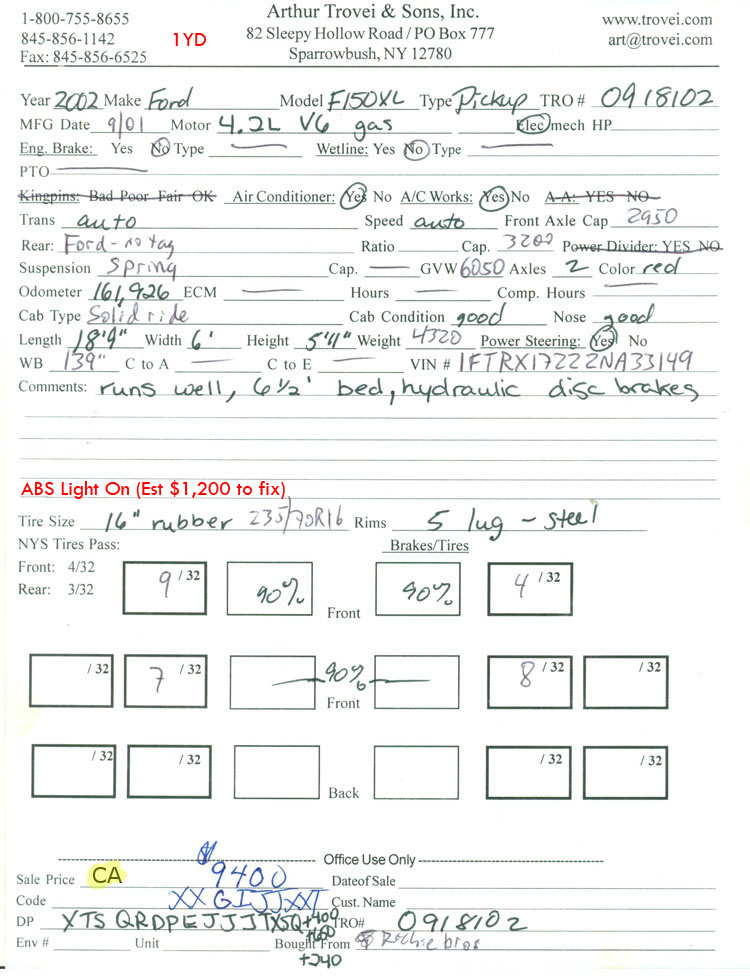 1-800-755-8655
845-856-1142
Fax: 845-856-6525
1YD
Arthur Trovei & Sons, Inc.
82 Sleepy Hollow Road / PO Box 777
Sparrowbush, NY 12780
www.trovei.com
art@trovei.com
Year 2002 Make Ford Model F150XL Type Pickup TRO # 0918102
MFG Date 9/01 Motor 4.2L V6 gas Elec mech HP
Eng. Brake: Yes No Type Wetline: Yes No Type
PTO
Kingpins: Bad Poor Fair OK Air Conditioner: Yes No A/C Works: Yes No A-A: YES NO
Trans auto Speed auto Front Axle Cap 2950
Rear: Ford - no tag Ratio Cap. 3200 Power Divider: YES NO
Suspension Spring Cap. GVW 6050 Axles 2 Color red
Odometer 161,926 ECM Hours Comp. Hours
Cab Type Solid ride Cab Condition good Nose good
Length 18'9" Width 6' Height 5'4" Weight 4320 Power Steering: Yes No
WB 139" C to A C to E VIN # 1FTRX17222NA33149
Comments: runs well, 6 1/2' bed, hydraulic disc brakes
ABS Light On (Est $1,200 to fix)
Tire Size 16" rubber 235/70R16 Rims 5 lug - steel
NYS Tires Pass: Brakes/Tires
Front: 4/32
Rear: 3/32
9 /32 90% Front 90% 4 /32
/32 7 /32 90% Front 8 /32 /32
/32 /32 Back /32 /32
Office Use Only
Sale Price CA $9400 Date of Sale
Code XXGIJJXXI Cust. Name
DP XTSQRDPEJJJTXSQ+400 TRO# 0918102
Env # Unit +600 Bought From Ritchie bros
+240